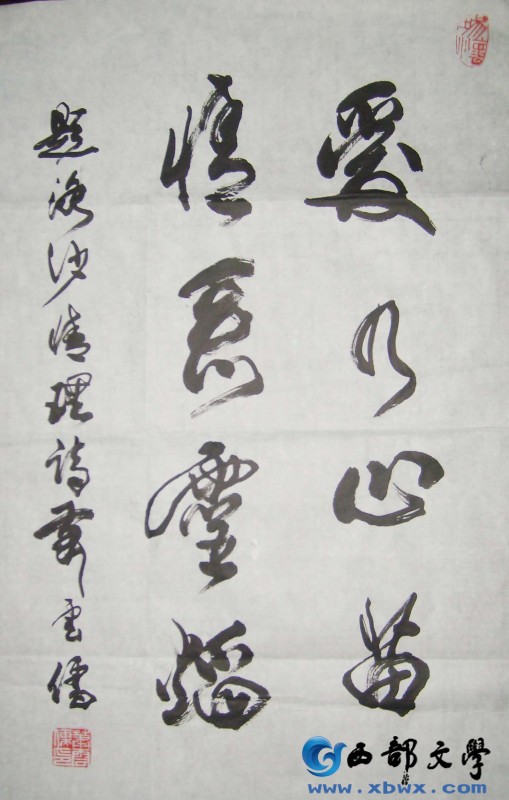 愛乃心苗
情為靈焰
題沙情理詩 雲儒
西部文學
www.xbwx.com